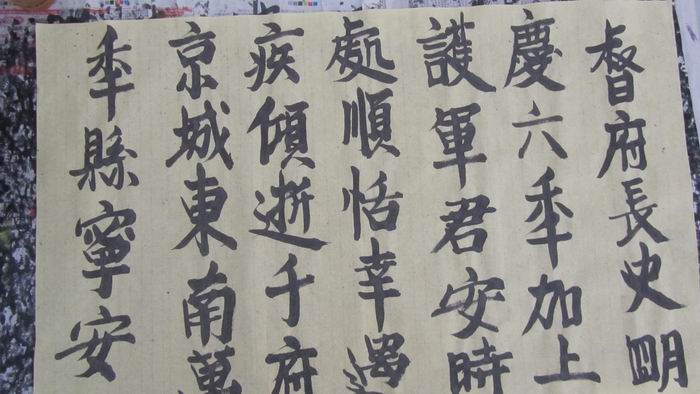 督府長史明
慶六秊加上
護軍君安時
處順恬幸遇
疾傾逝千府
京城東南萬
秊縣寧安